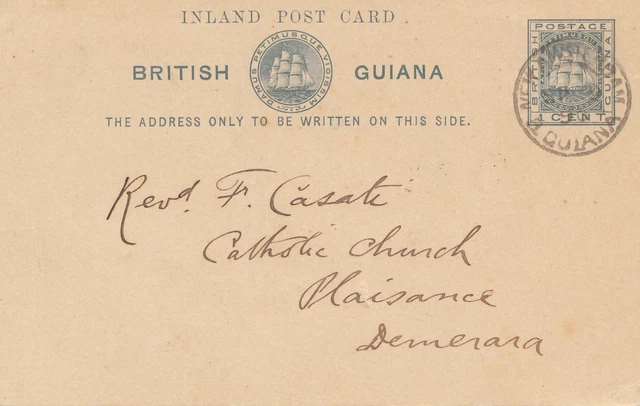 INLAND POST CARD.
BRITISH GUIANA
DAMUS PETIMUSQUE VICISSIM
THE ADDRESS ONLY TO BE WRITTEN ON THIS SIDE.
POSTAGE
BRITISH
GUIANA
1 CENT
GUIANA
Revd. F. Casati
Catholic Church
Plaisance
Demerara